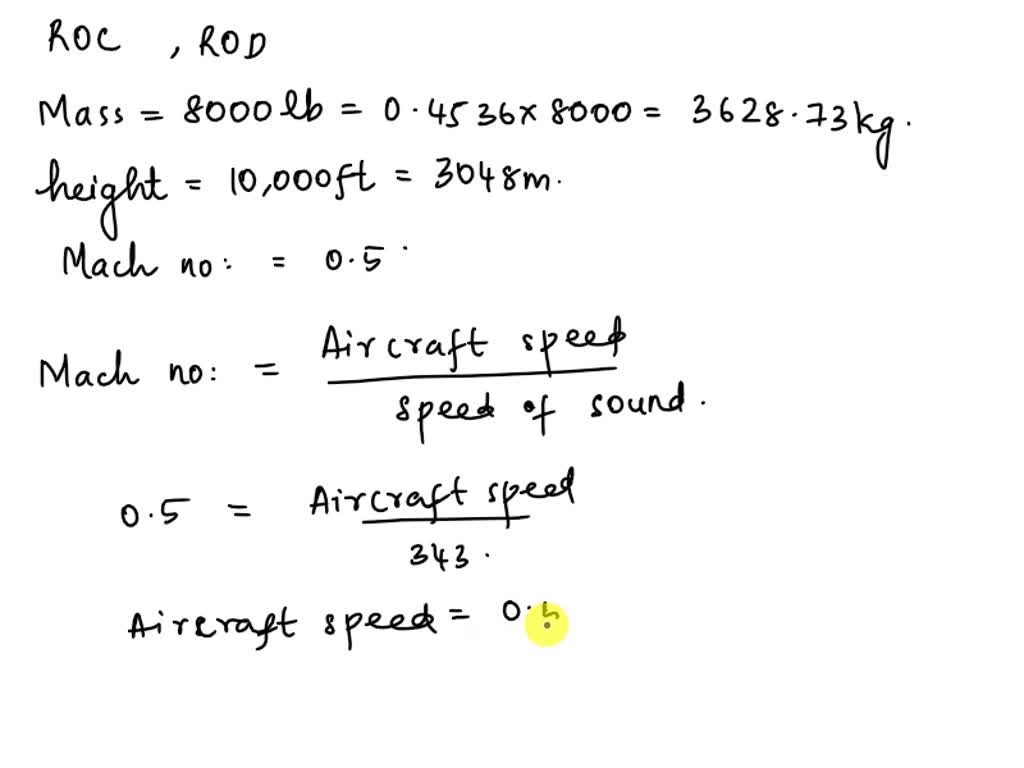 ROC , ROD
Mass = 8000 lb = 0.4536 x 8000 = 3628.73 kg.
height = 10,000 ft = 3048 m.
Mach no: = 0.5
Mach no: = Aircraft speed
speed of sound.
0.5 = Aircraft speed
343.
Aircraft speed = 0.5